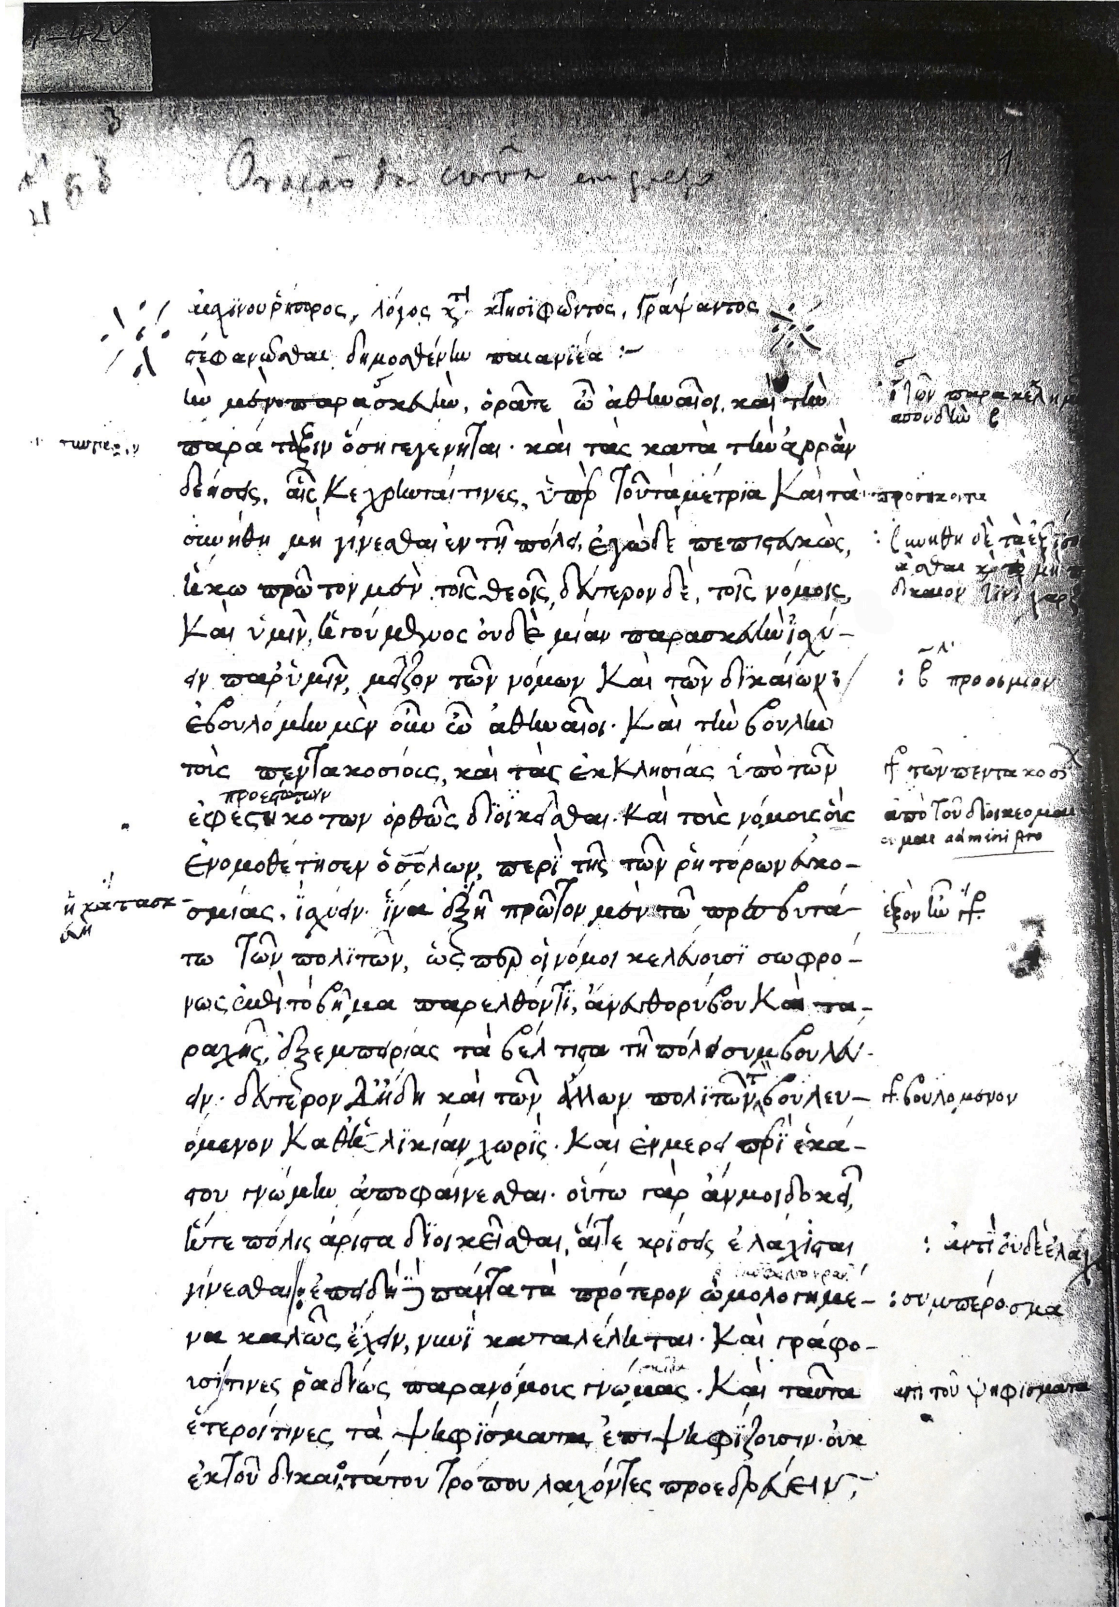 Αἰσχίνου ῥήτορος, λόγος κατὰ Κτησιφῶντος, Γράψαντος
στεφανῶσθαι δημοσθένην παιανιέα :~
τὴν μὲν παρασκευὴν, ὁρᾶτε ὦ ἀθηναῖοι, καὶ τὴν
παρά ταξιν ὅση γεγένηται· καὶ τὰς κατὰ τὴν ἀγορὰν
δεήσεις, αἷς κέχρηνταί τινες, ὑπὲρ τοῦ τὰ μέτρια Καὶ τὰ
συνήθη μὴ γίνεσθαι ἐν τῇ πόλει, ἐγὼ δὲ πεπιστευκὼς,
ἥκω πρῶτον μὲν τοῖς θεοῖς, δεύτερον δὲ, τοῖς νόμοις,
Καὶ ὑμῖν, ἡγούμενος οὐδεμίαν παρασκευὴν ἰσχύ-
ειν παρ' ὑμῖν, μεῖζον τῶν νόμων Καὶ τῶν δικαίων:
ἐβουλόμην μὲν οὖν ὦ ἀθηναῖοι· Καὶ τὴν βουλὴν
τοὺς πεντακοσίους, καὶ τὰς ἐκκλησίας ὑπὸ τῶν
προεστότων
ἐφεστηκότων ὀρθῶς διοικεῖσθαι· Καὶ τοὺς νόμους οὓς
ἐνομοθέτησεν ὁ σόλων, περὶ τῆς τῶν ῥητόρων εὐκο-
σμίας, ἰσχύειν· ἵνα ἐξῇ πρῶτον μὲν τῷ πρεσβυτά-
τω τῶν πολιτῶν, ὥσπερ οἱ νόμοι κελεύουσι σωφρό-
νως ἐπὶ τὸ βῆμα παρελθόντι, ἄνευ θορύβου Καὶ τα-
ραχῆς, ἐξ ἐμπειρίας τὰ βέλτιστα τῇ πόλει συμβουλεύ-
ειν· δεύτερον δ' ἤδη καὶ τῶν ἄλλων πολιτῶν τὸν βουλευ-
όμενον Καθ' ἡλικίαν χωρὶς· Καὶ ἐν μέρει περὶ ἑκά-
στου γνώμην ἀποφαίνεσθαι· οὕτω γὰρ ἄν μοι δοκεῖ,
ἥ τε πόλις ἄριστα διοικεῖσθαι, αἵ τε κρίσεις ἐλάχισται
γίνεσθαι· ἐπειδὴ πάντα τὰ πρότερον ὡμολογημέ-
να καλῶς ἔχειν, νυνὶ καταλέλυται· Καὶ γράφου-
σί τινες ῥαδίως παρανόμους γνώμας· Καὶ ταῦτα
ἕτεροί τινες τὰ ψηφίσματα ἐπιψηφίζουσιν· οὐκ
ἐκ τοῦ δικαιοτάτου τρόπου λαχόντες προεδρεύειν,
: προοίμιον
τῶν πεντακοσί
ἀπὸ τοῦ διοικέομαι
administro
ἢ κατασκ
βουλόμενον
: ἀντὶ οὐδὲ ἐλαχ
: συμπέρασμα
τοῦ ψηφίσματα
1